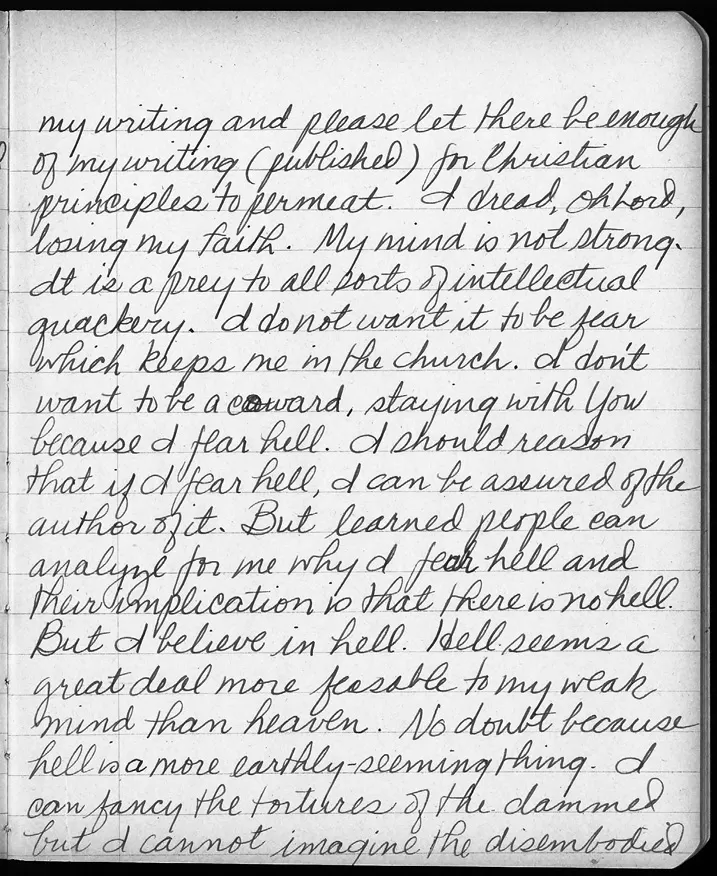 my writing and please let there be enough
of my writing (published) for Christian
principles to permeat. I dread, Oh Lord,
losing my faith. My mind is not strong.
It is a prey to all sorts of intellectual
quackery. I do not want it to be fear
which keeps me in the church. I don't
want to be a coward, staying with You
because I fear hell. I should reason
that if I fear hell, I can be assured of the
author of it. But learned people can
analyze for me why I fear hell and
their implication is that there is no hell.
But I believe in hell. Hell seems a
great deal more feasable to my weak
mind than heaven. No doubt because
hell is a more earthly-seeming thing. I
can fancy the tortures of the dammed
but I cannot imagine the disembodied